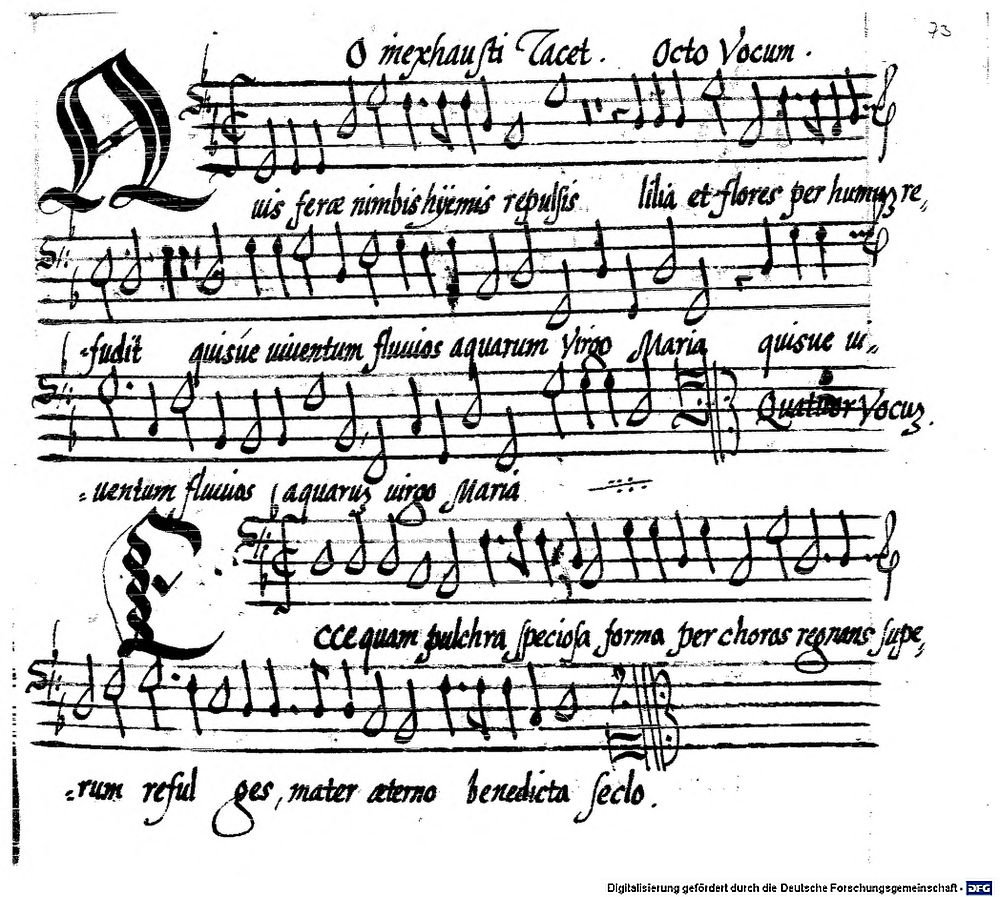 73
O inexhausti Tacet. Octo Vocum.
Quis feræ nimbis hÿemis repulsis lilia et flores per humuz re,,
=fudit quisue uiuentum fluuios aquarum Virgo Maria quisue ui,,
Quatuor Vocuz.
=uentum fluuios aquaruz uirgo Maria
Ecce quam pulchra speciosa forma per choros regnans supe,,
=rum reful ges, mater æterno benedicta seclo.
Digitalisierung gefördert durch die Deutsche Forschungsgemeinschaft - DFG